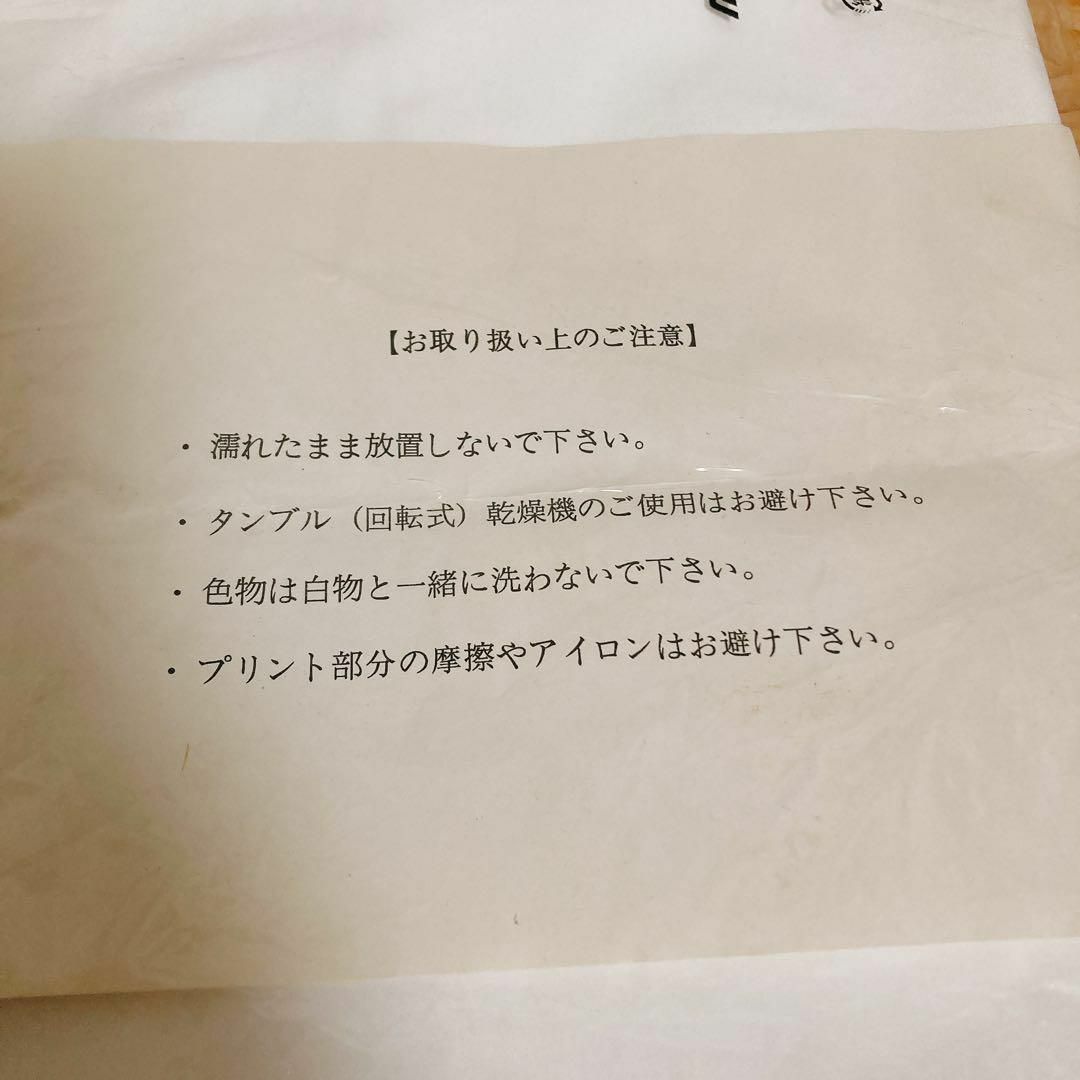 【お取り扱い上のご注意】
・濡れたまま放置しないで下さい。
・タンブル（回転式）乾燥機のご使用はお避け下さい。
・色物は白物と一緒に洗わないで下さい。
・プリント部分の摩擦やアイロンはお避け下さい。